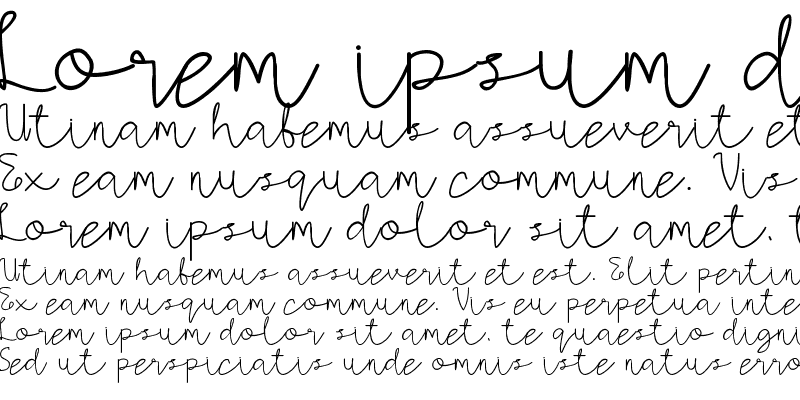 Lorem ipsum d
Utinam habemus assueverit et
Ex eam nusquam commune. Vis
Lorem ipsum dolor sit amet, t
Utinam habemus assueverit et est. Elit pertin
Ex eam nusquam commune. Vis eu perpetua inte
Lorem ipsum dolor sit amet, te quaestio digni
Sed ut perspiciatis unde omnis iste natus erro